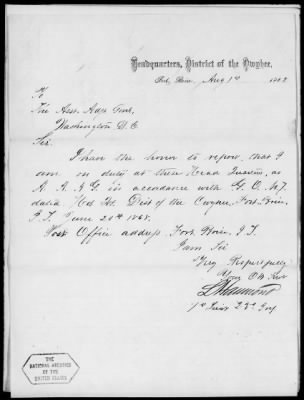 Headquarters, District of the Owyhee,
Fort Boise, Aug 1st 1868
To
The Asst. Adjt Genl,
Washington D.C.
Sir.
I have the honor to report, that I
am on duty at these Head Quarters, as
A.A.A.G. in accordance with G.O. No 7
dated Hd. Qrs. Dist of the Owyhee, Fort Boise,
I.T. June 20th 1868.
Post Office address Fort Boise I.T.
I am Sir
Very Respectfully
Your Obt Servt
1st Lieut 23d Inf
THE
NATIONAL ARCHIVES
OF THE
UNITED STATES